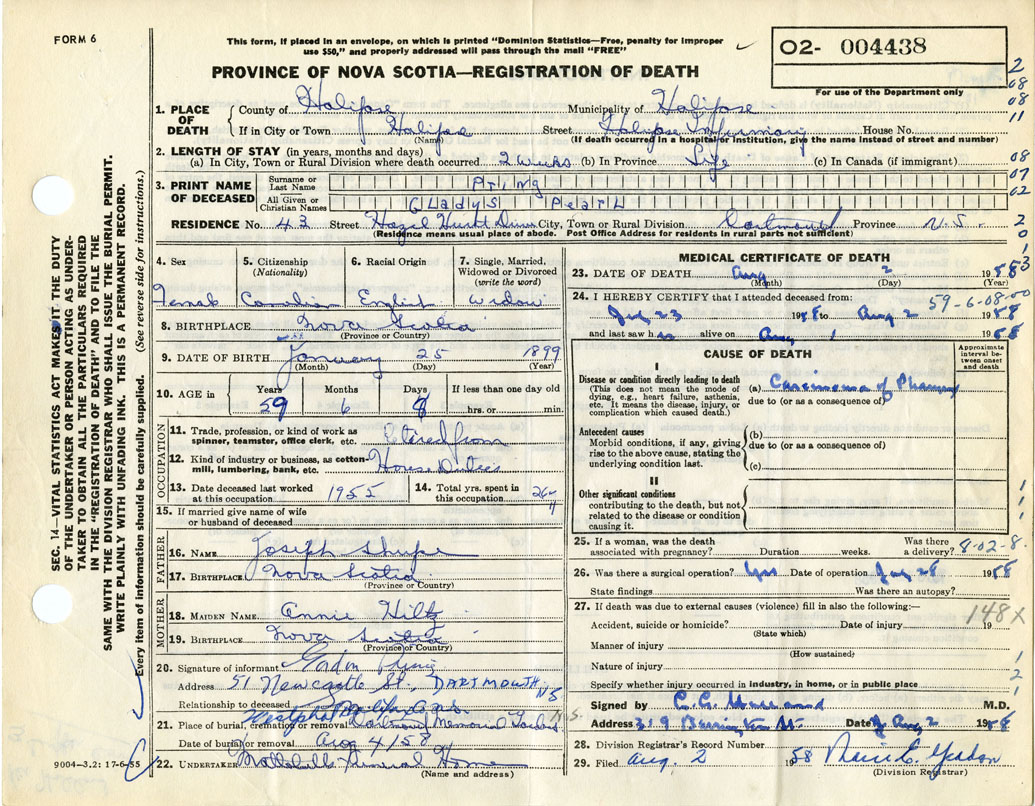 FORM 6
This form, if placed in an envelope, on which is printed "Dominion Statistics—Free, penalty for improper
use $50," and properly addressed will pass through the mail "FREE"
O2- 004438
PROVINCE OF NOVA SCOTIA—REGISTRATION OF DEATH
For use of the Department only
2
08
08
11
1. PLACE OF DEATH
County of Halifax Municipality of Halifax
If in City or Town Halifax Street Halifax Infirmary House No.
(Name) (If death occurred in a hospital or institution, give the name instead of street and number)
2. LENGTH OF STAY (in years, months and days)
(a) In City, Town or Rural Division where death occurred 2 weeks (b) In Province Life (c) In Canada (if immigrant)
08
07
02
3. PRINT NAME OF DECEASED
Surname or Last Name Pring
All Given or Christian Names Gladys Pearl
RESIDENCE No. 43 Street Hazel Hurst Drive City, Town or Rural Division Dartmouth Province N.S.
(Residence means usual place of abode. Post Office Address for residents in rural parts not sufficient)
2
0
1
3
4. Sex 5. Citizenship (Nationality) 6. Racial Origin 7. Single, Married, Widowed or Divorced (write the word)
Female Canadian English Widow
8. BIRTHPLACE Nova Scotia
(Province or Country)
9. DATE OF BIRTH January 25 1899
(Month) (Day) (Year)
10. AGE in Years Months Days If less than one day old
59 6 8 hrs. or min.
OCCUPATION
11. Trade, profession, or kind of work as spinner, teamster, office clerk, etc. Retired from
12. Kind of industry or business, as cotton-mill, lumbering, bank, etc. House Duties
13. Date deceased last worked at this occupation 1955 14. Total yrs. spent in this occupation 26
15. If married give name of wife or husband of deceased
FATHER
16. NAME Joseph Shupe
17. BIRTHPLACE Nova Scotia
(Province or Country)
MOTHER
18. MAIDEN NAME Annie Hiltz
19. BIRTHPLACE Nova Scotia
(Province or Country)
20. Signature of informant Gordon Pring
Address 51 Newcastle St., DARTMOUTH NS
Relationship to deceased
21. Place of burial, cremation or removal Dartmouth Memorial Gardens N.S.
Date of burial or removal Aug 4/58
22. UNDERTAKER Funeral Home
(Name and address)
9004-3.2: 17-6-55
MEDICAL CERTIFICATE OF DEATH
23. DATE OF DEATH Aug 2 1958
(Month) (Day) (Year)
24. I HEREBY CERTIFY that I attended deceased from: 59-6-08-00
July 23 1958 to Aug 2 1958
and last saw h alive on Aug 1 1958
CAUSE OF DEATH
Approximate interval between onset and death
I
Disease or condition directly leading to death
(This does not mean the mode of dying, e.g., heart failure, asthenia, etc. It means the disease, injury, or complication which caused death.)
(a) Carcinoma of Pharynx
due to (or as a consequence of)
Antecedent causes
Morbid conditions, if any, giving rise to the above cause, stating the underlying condition last.
(b)
due to (or as a consequence of)
(c)
II
Other significant conditions
contributing to the death, but not related to the disease or condition causing it.
1
1
1
25. If a woman, was the death associated with pregnancy? Duration weeks. Was there a delivery? 8-02-8
26. Was there a surgical operation? Yes Date of operation July 28 1958
State findings Was there an autopsy?
27. If death was due to external causes (violence) fill in also the following:—
148X
Accident, suicide or homicide? Date of injury 19
(State which)
Manner of injury
(How sustained)
Nature of injury
Specify whether injury occurred in industry, in home, or in public place
1
2
1
Signed by M.D.
Address 319 Barrington St Date Aug 2 1958
28. Division Registrar's Record Number
29. Filed Aug. 2 1958
(Division Registrar)
SEC. 14—VITAL STATISTICS ACT MAKES IT THE DUTY
OF THE UNDERTAKER OR PERSON ACTING AS UNDER-
TAKER TO OBTAIN ALL THE PARTICULARS REQUIRED
IN THE "REGISTRATION OF DEATH" AND TO FILE THE
SAME WITH THE DIVISION REGISTRAR WHO SHALL ISSUE THE BURIAL PERMIT.
WRITE PLAINLY WITH UNFADING INK. THIS IS A PERMANENT RECORD.
Every item of information should be carefully supplied. (See reverse side for instructions.)